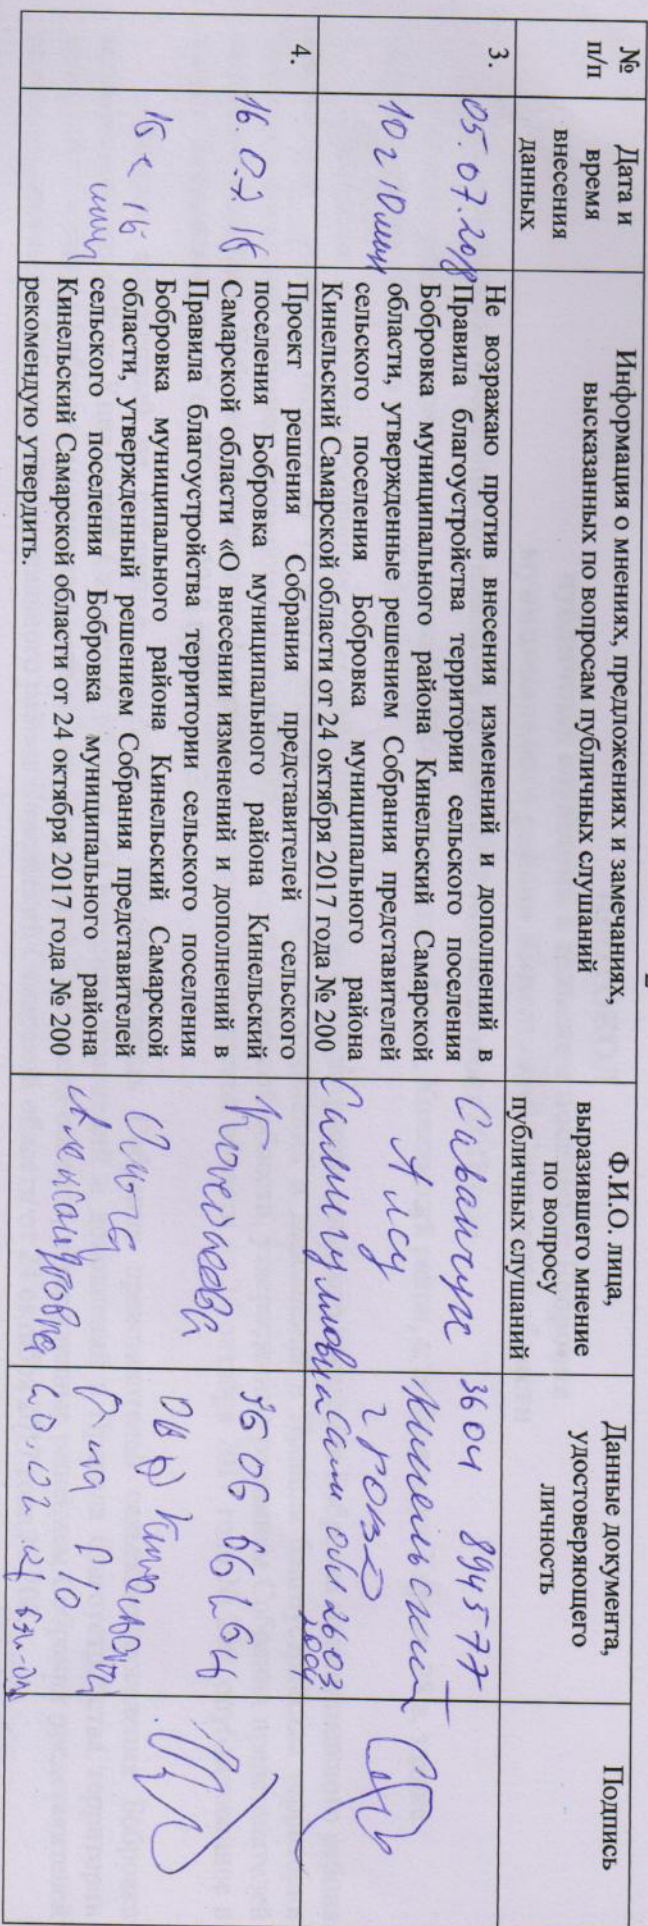 №
п/п
Дата и
время
внесения
данных
Информация о мнениях, предложениях и замечаниях,
высказанных по вопросам публичных слушаний
Ф.И.О. лица,
выразившего мнение
по вопросу
публичных слушаний
Данные документа,
удостоверяющего
личность
Подпись
3.
05.07.2018
10 10мин
Не возражаю против внесения изменений и дополнений в
Правила благоустройства территории сельского поселения
Бобровка муниципального района Кинельский Самарской
области, утвержденные решением Собрания представителей
сельского поселения Бобровка муниципального района
Кинельский Самарской области от 24 октября 2017 года № 200
Саванчук
Алсу
3604 894577
Кинельский
ГРОВД
4.
16.07.18
15 15
мин
Проект решения Собрания представителей сельского
поселения Бобровка муниципального района Кинельский
Самарской области «О внесении изменений и дополнений в
Правила благоустройства территории сельского поселения
Бобровка муниципального района Кинельский Самарской
области, утвержденный решением Собрания представителей
сельского поселения Бобровка муниципального района
Кинельский Самарской области от 24 октября 2017 года № 200
рекомендую утвердить.
Ольга
Александровна